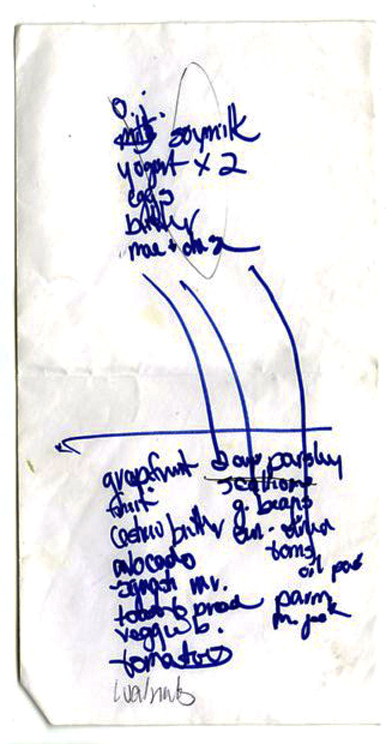 O.J.
soymilk
yogurt x 2
eggs
butter
mac + chz
grapefruit
fruit
cashew butter
avocado
squash mr.
toast bread
veggie b.
tomatoes
walnuts
parsley
scallions
g. beans
sun-dried
toms
oil pac
parm
m. jack